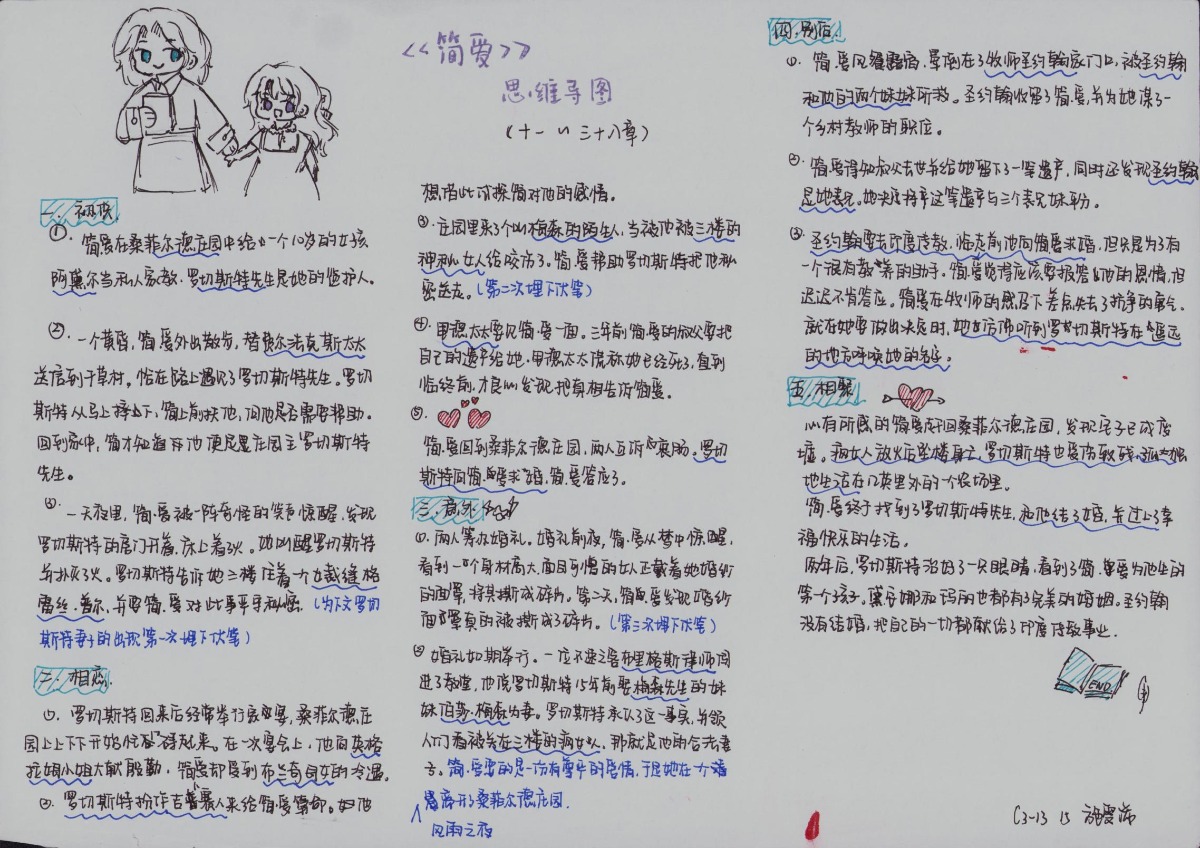 《简爱》
思维导图
(十一~三十八章)
一.初识
①.简爱在桑菲尔德庄园中给一个10岁的女孩
阿黛尔当私人家教.罗切斯特先生是她的监护人。
②.一个黄昏,简爱外出散步,替费尔法克斯太太
送信到干草村。恰在路上遇见了罗切斯特先生。罗切
斯特从马上摔下,简上前扶他,问他是否需要帮助.
回到家中,简才知道并他便是庄园主罗切斯特
先生。
③.一天夜里,简·爱被一阵奇怪的笑声惊醒,发现
罗切斯特的房门开着,床上着火。她叫醒罗切斯特
并扑灭火。罗切斯特告诉她三楼住着一个女裁缝格
雷丝·普尔,并要简·爱对此事严守秘密.(为下文罗切
斯特妻子的出现第一次埋下伏笔)
二.相恋.
①.罗切斯特回来后经常举行家宴,桑菲尔德庄
园上上下下开始忙碌起来。在一次宴会上,他向英格
拉姆小姐大献殷勤,简爱却受到布兰奇母女的冷遇。
②.罗切斯特扮作吉普赛人来给简爱算命.
想借此试探简对他的感情。
③.庄园里来了个叫梅森的陌生人,当夜他被三楼的
神秘女人给咬伤了。简·爱帮助罗切斯特把他秘
密送走。(第二次埋下伏笔)
④.里德太太要见简·爱一面。三年前简·爱的叔父要把
自己的遗产给她.里德太太谎称她已经死了,直到
临终前,才良心发现,把真相告诉简爱。
⑤.
简·爱回到桑菲尔德庄园,两人互诉衷肠。罗切
斯特向简·爱求婚,简·爱答应了。
三.意外
①.两人筹办婚礼。婚礼前夜,简·爱从梦中惊醒,
看到一个身材高大,面目可憎的女人正戴着她婚纱
的面罩,将其撕成碎片。第二天,简·爱发现婚纱
面罩真的被撕成了碎片。(第三次埋下伏笔)
②婚礼如期举行。一位不速之客布里格斯律师闯
进了教堂,他说罗切斯特15年前娶梅森先生的妹
妹伯莎·梅森为妻。罗切斯特承认了这一事实,并领
人们看被关在三楼的疯女人,那就是他的合法妻
子。简·爱要的是一份有尊严的爱情,于是她在一个
离开了桑菲尔德庄园.
风雨之夜
四.别后.
①.简·爱风餐露宿.晕倒在了牧师圣约翰家门口,被圣约翰
和他的两个妹妹所救。圣约翰收留了简·爱,并为她谋了一
个乡村教师的职位。
②.简爱得知叔父去世并给她留下了一笔遗产,同时还发现圣约翰
是她表兄。她决定将这笔遗产与三个表兄妹平分。
③.圣约翰要去印度传教,临走前他向简爱求婚,但只是为了有
一个很有教养的助手。简·爱觉得应该要报答他的恩情,但
迟迟不肯答应。简爱在牧师的感召下差点失去了抗争的勇气.
就在她要做出决定时,她仿佛听到罗切斯特在遥远
的地方呼唤她的名字。
五.相聚
心有所感的简爱赶回桑菲尔德庄园,发现房子已成废
墟。疯女人放火后坠楼身亡,罗切斯特也受伤致残,孤独
地生活在几英里外的一个农场里。
简·爱终于找到了罗切斯特先生,和他结了婚,并过上了幸
福快乐的生活.
两年后,罗切斯特治好了一只眼睛,看到了简·爱为他生的
第一个孩子。黛安娜和玛丽也都有了完美的婚姻。圣约翰
没有结婚,把自己的一切都献给了印度传教事业.
END
C3-13 15